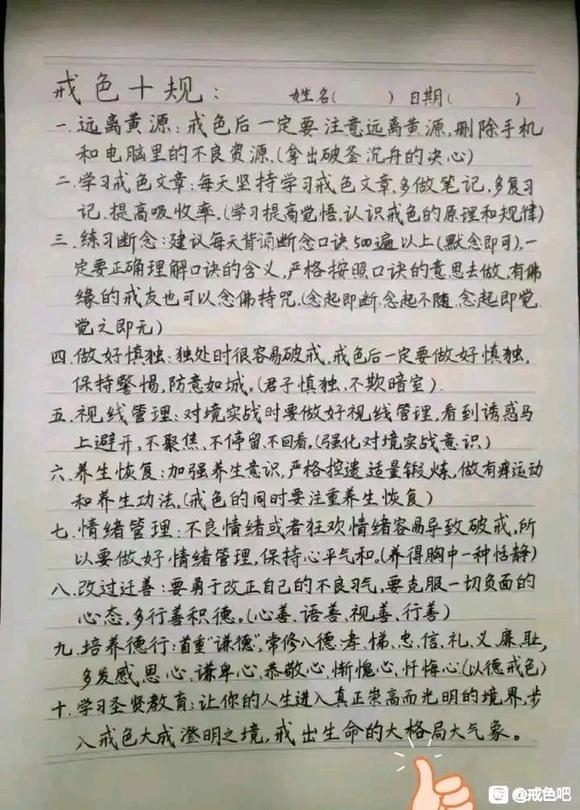 戒色十规:    姓名(    )日期(    )
一.远离黄源:戒色后一定要注意远离黄源,删除手机
和电脑里的不良资源.(拿出破釜沉舟的决心)
二.学习戒色文章:每天坚持学习戒色文章,多做笔记,多复习
记,提高吸收率.(学习提高觉悟,认识戒色的原理和规律)
三.练习断念:建议每天背诵断念口诀500遍以上(默念即可).一
定要正确理解口诀的含义,严格按照口诀的意思去做.有佛
缘的戒友也可以念佛持咒.(念起即断,念起不随,念起即觉,
觉之即无)
四.做好慎独:独处时很容易破戒,戒色后一定要做好慎独,
保持警惕,防意如城.(君子慎独,不欺暗室).
五.视线管理:对境实战时要做好视线管理,看到诱惑马
上避开,不聚焦、不停留、不回看.(强化对境实战意识)
六.养生恢复:加强养生意识,严格控遗,适量锻炼,做有氧运动
和养生功法.(戒色的同时要注重养生恢复)
七.情绪管理:不良情绪或者狂欢情绪容易导致破戒,所
以要做好情绪管理,保持心平气和.(养得胸中一种恬静)
八.改过迁善:要勇于改正自己的不良习气,要克服一切负面的
心态,多行善积德.(心善、语善、视善、行善)
九.培养德行:首重"谦德",常修八德:孝、悌、忠、信、礼、义、廉、耻,
多发感恩心、谦卑心、恭敬心、惭愧心、忏悔心.(以德戒色)
十.学习圣贤教育:让你的人生进入真正崇高而光明的境界,步
入戒色大成澄明之境,戒出生命的大格局大气象。
@戒色吧